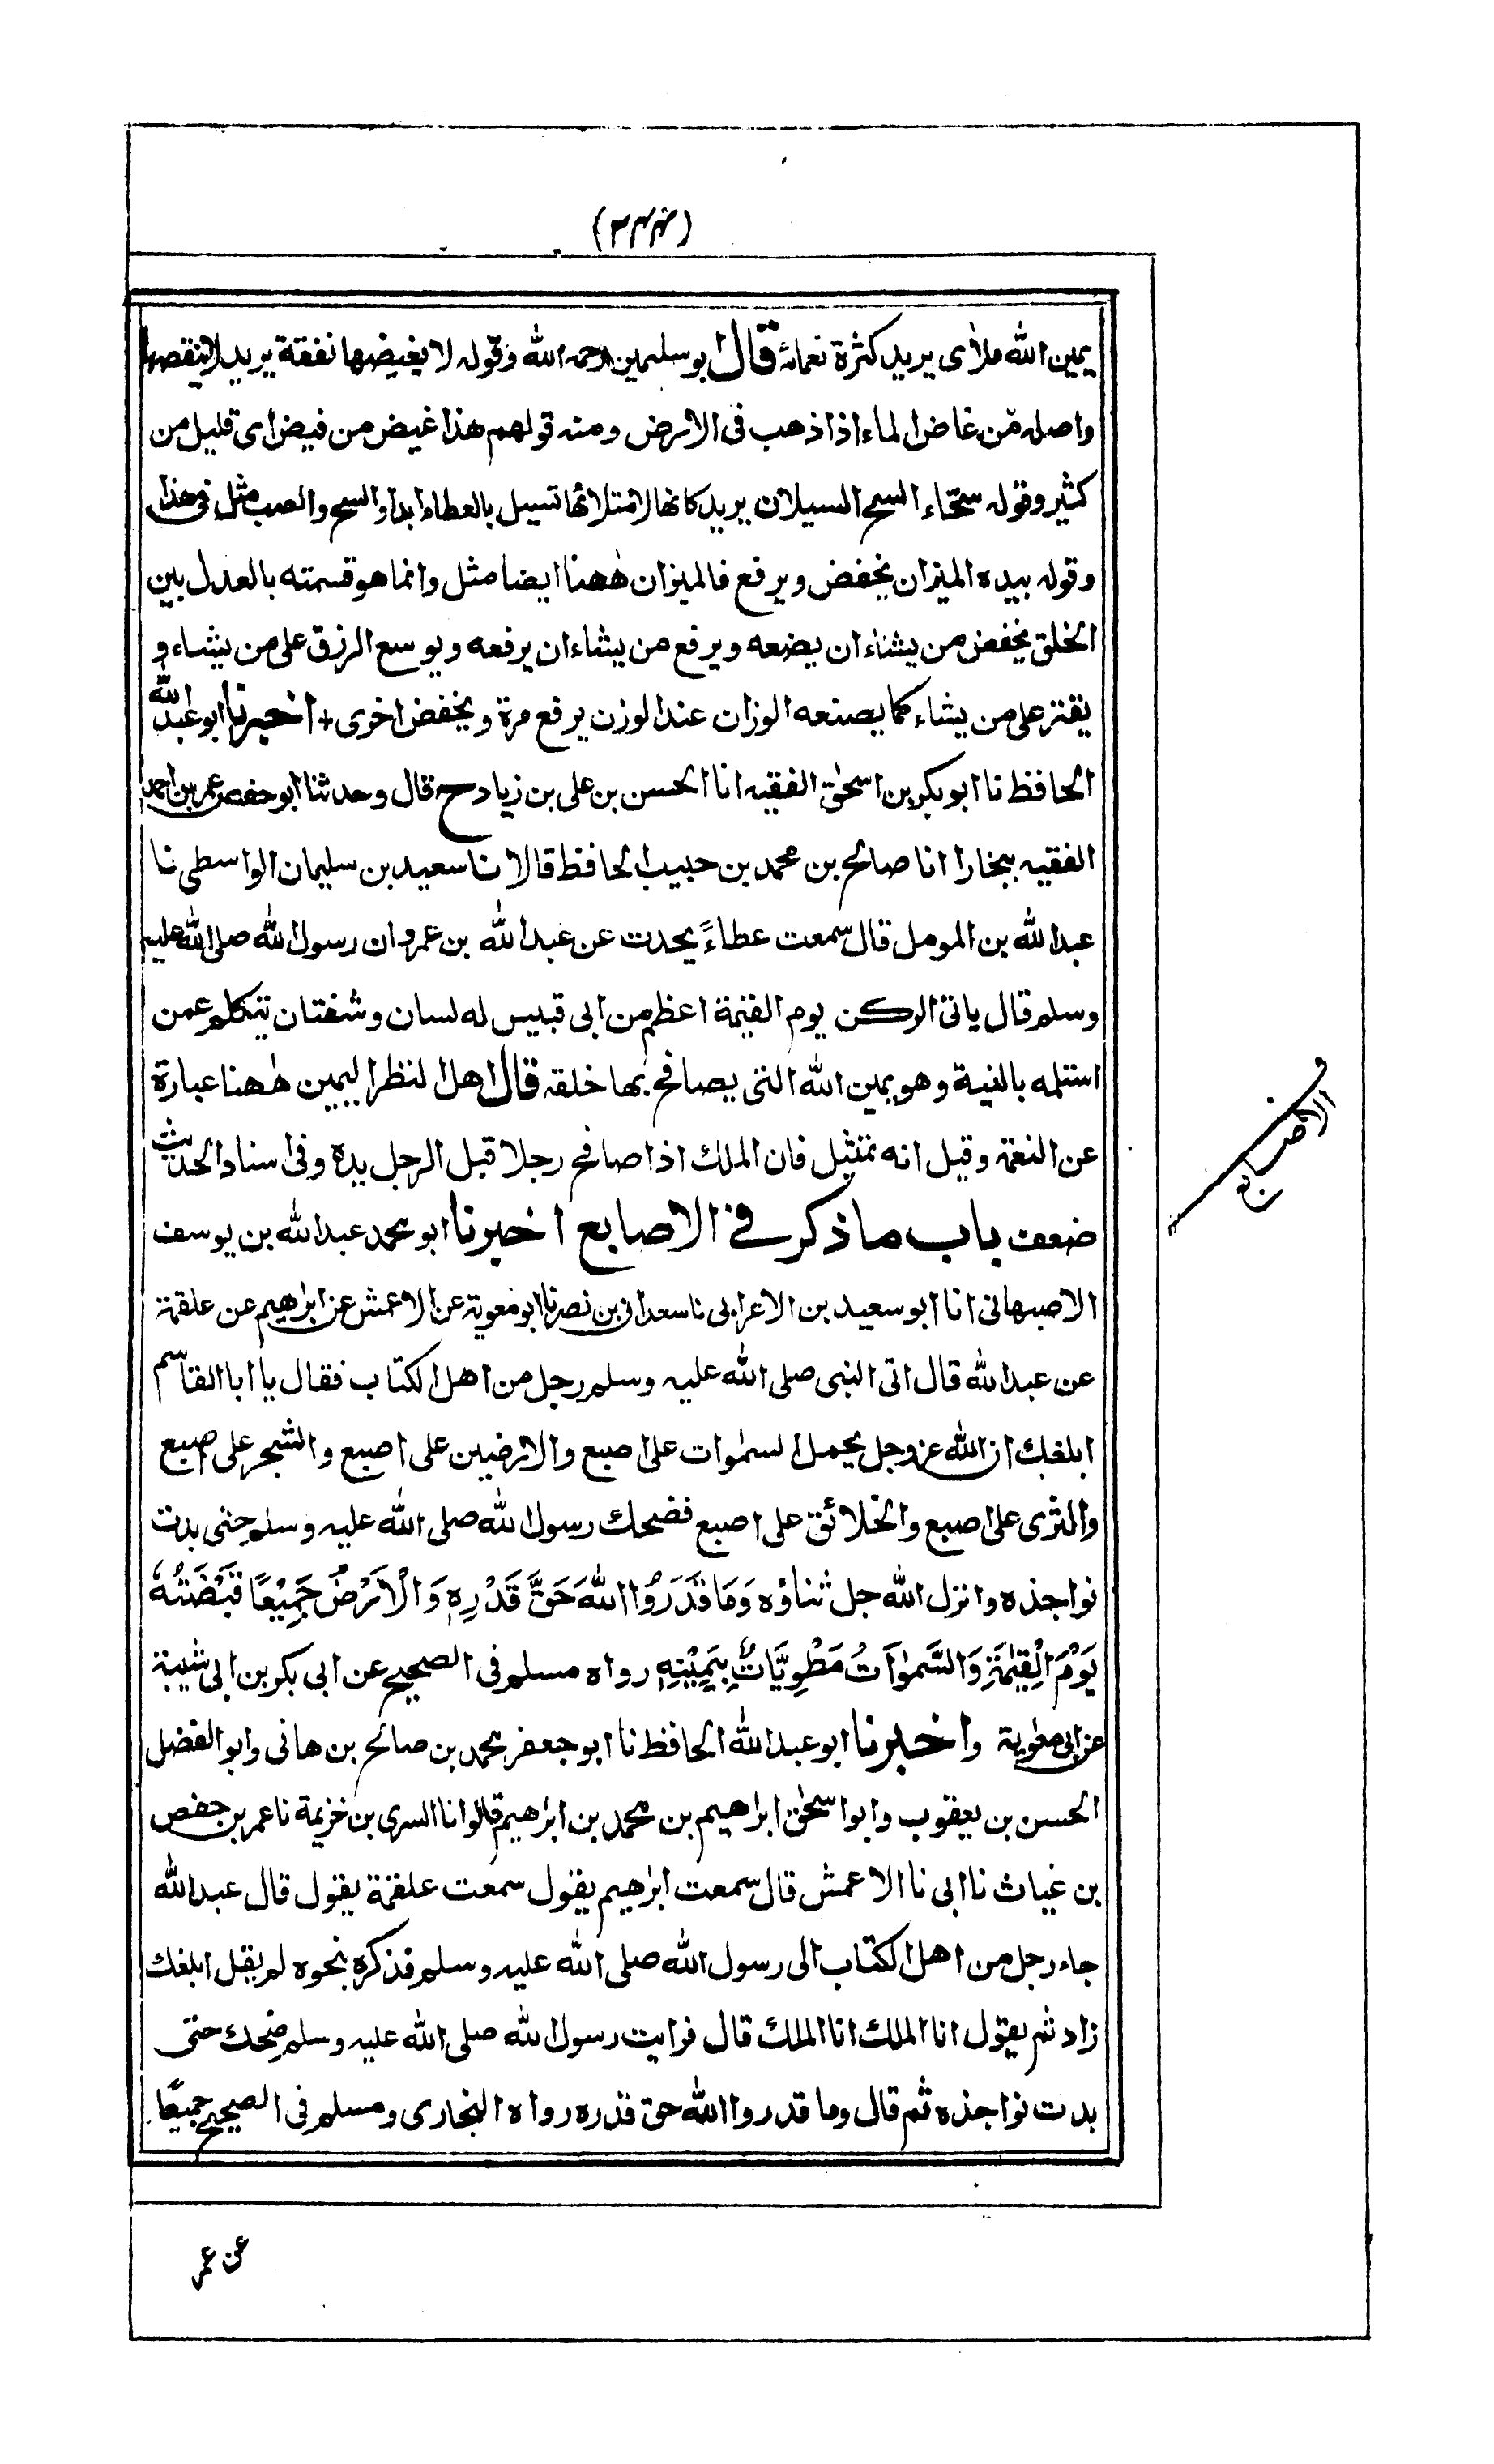 يمين الله ملأى يريد كثرة نعمائه قال ابو سليمن رحمه الله وقوله لا يغيضها نفقة يريد لا ينقصها
واصله من غاض الماء اذا ذهب فى الارض ومنه قولهم هذا غيض من فيض اى قليل من
كثير وقوله سحّاء السح السيلان يريد كانها لامتلائها تسيل بالعطاء ابدا والسح والصب مثل فى هذا
وقوله بيده الميزان يخفض ويرفع فالميزان ههنا ايضا مثل وانما هو قسمته بالعدل بين
الخلق يخفض من يشاء ان يضعه ويرفع من يشاء ان يرفعه ويوسع الرزق على من يشاء و
يقتر على من يشاء كما يصنعه الوزان عند الوزن يرفع مرة ويخفض اخرى + اخبرنا ابو عبد الله
الحافظ نا ابو بكر بن اسحٰق الفقيه انا الحسن بن على بن زياد ح قال وحدثنا ابو حفص عمر بن احمد
الفقيه ببخارا انا صالح بن محمد بن حبيب الحافظ قالا نا سعيد بن سليمان الواسطى نا
عبد الله بن المومل قال سمعت عطاءً يحدث عن عبد الله بن عمرو ان رسول الله صلى الله عليه
وسلم قال ياتى الركن يوم القيٰمة اعظم من ابى قبيس له لسان وشفتان يتكلم عمن
استلمه بالنية وهو يمين الله التى يصافح بها خلقه قال اهل النظر اليمين ههنا عبارة
عن النعمة وقيل انه تمثيل فان الملك اذا صافح رجلا قبل الرجل يده وفى اسناد الحديث
ضعف باب ما ذكر فى الاصابع اخبرنا ابو محمد عبد الله بن يوسف
الاصبهانى انا ابو سعيد بن الاعرابى نا سعدان بن نصر نا ابو معوية عن الاعمش عن ابرٰهيم عن علقمة
عن عبد الله قال اتى النبى صلى الله عليه وسلم رجل من اهل الكتاب فقال يا ابا القاسم
ابلغك ان الله عز وجل يحمل السمٰوات على اصبع والارضين على اصبع والشجر على اصبع
والثرى على اصبع والخلائق على اصبع فضحك رسول الله صلى الله عليه وسلم حتى بدت
نواجذه وانزل الله جل ثناؤه وَمَا قَدَرُوا اللهَ حَقَّ قَدْرِهٖ وَالْاَرْضُ جَمِيْعًا قَبْضَتُهٗ
يَوْمَ الْقِيٰمَةِ وَالسَّمٰوَاتُ مَطْوِيَّاتٌ بِيَمِيْنِهٖ رواه مسلم فى الصحيح عن ابى بكر بن ابى شيبة
عن ابى معٰوية واخبرنا ابو عبد الله الحافظ نا ابو جعفر محمد بن صالح بن هانى وابو الفضل
الحسن بن يعقوب وابو اسحٰق ابراهيم بن محمد بن ابرٰهيم قالوا نا السرى بن خزيمة نا عمر بن حفص
بن غياث نا ابى نا الاعمش قال سمعت ابرٰهيم يقول سمعت علقمة يقول قال عبد الله
جاء رجل من اهل الكتاب الى رسول الله صلى الله عليه وسلم فذكره بنحوه لم يقل ابلغك
زاد ثم يقول انا الملك انا الملك قال فرايت رسول الله صلى الله عليه وسلم ضحك حتى
بدت نواجذه ثم قال وما قدروا الله حق قدره رواه البخارى ومسلم فى الصحيح جميعًا
الاصابع
عن عمر